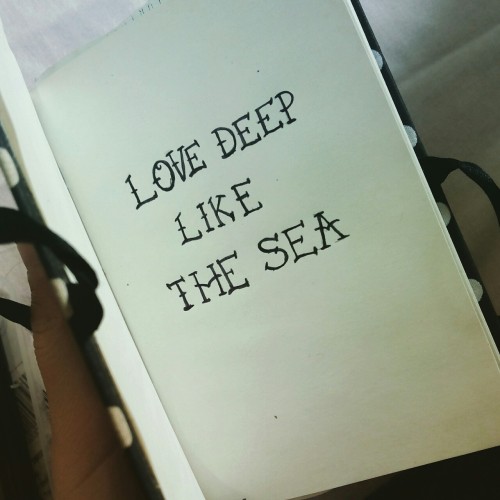 LOVE DEEP
LIKE
THE SEA